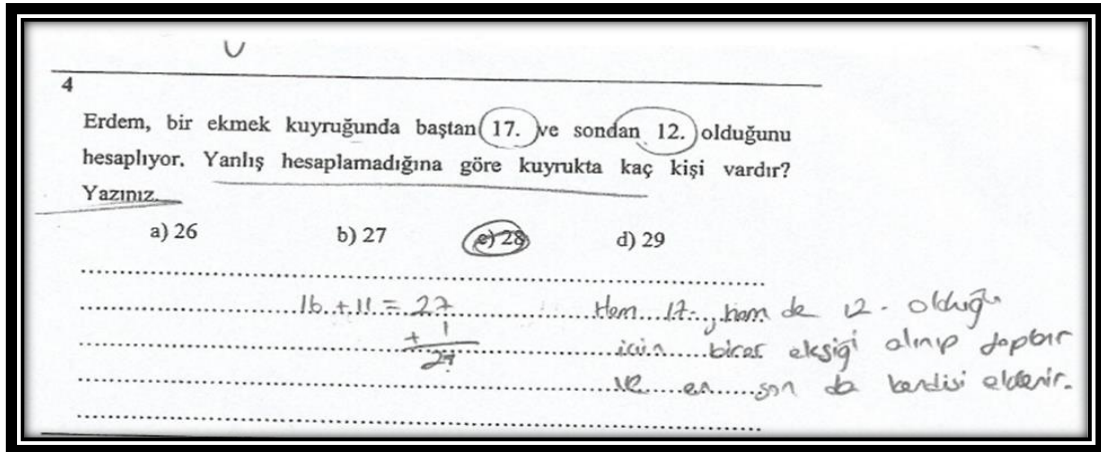 4
Erdem, bir ekmek kuyruğunda baştan 17. ve sondan 12. olduğunu
hesaplıyor. Yanlış hesaplamadığına göre kuyrukta kaç kişi vardır?
Yazınız.
a) 26 b) 27 c) 28 d) 29
16 + 11 = 27
+ 1
Hem 17., hem de 12. olduğu
için birer eksiği alınıp
ve en son da kendisi eklenir.